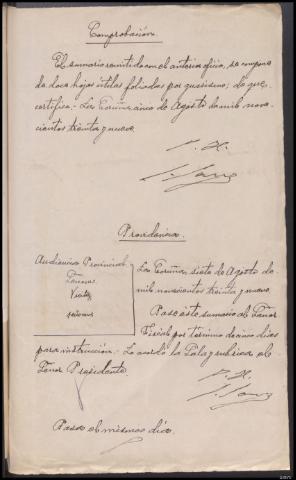 Comprobación.
El sumario remitido con el anterior oficio, se compone
de doce hojas útiles foliadas por guarismo; de que,
certifico.- La Coruña cinco de Agosto de mil nove-
cientos treinta y nueve.
Providencia.
Audiencia Provincial
Señores
La Coruña siete de Agosto de
mil novecientos treinta y nueve.
Pase este sumario al Señor
Fiscal por término de cinco dias
para instrucción.- Lo acordó la Sala y rubrica el
Señor Presidente.
Pasa el mismo día.